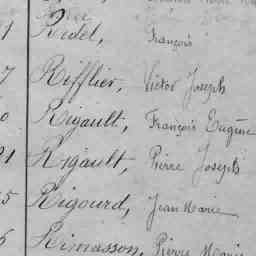 1 Ridel, François
7 Rifflier, Victor Joseph
0 Rigault, François Eugène
21 Rigault, Pierre Joseph
5 Rigourd, Jean Marie
6 Rimasson, Pierre Marie